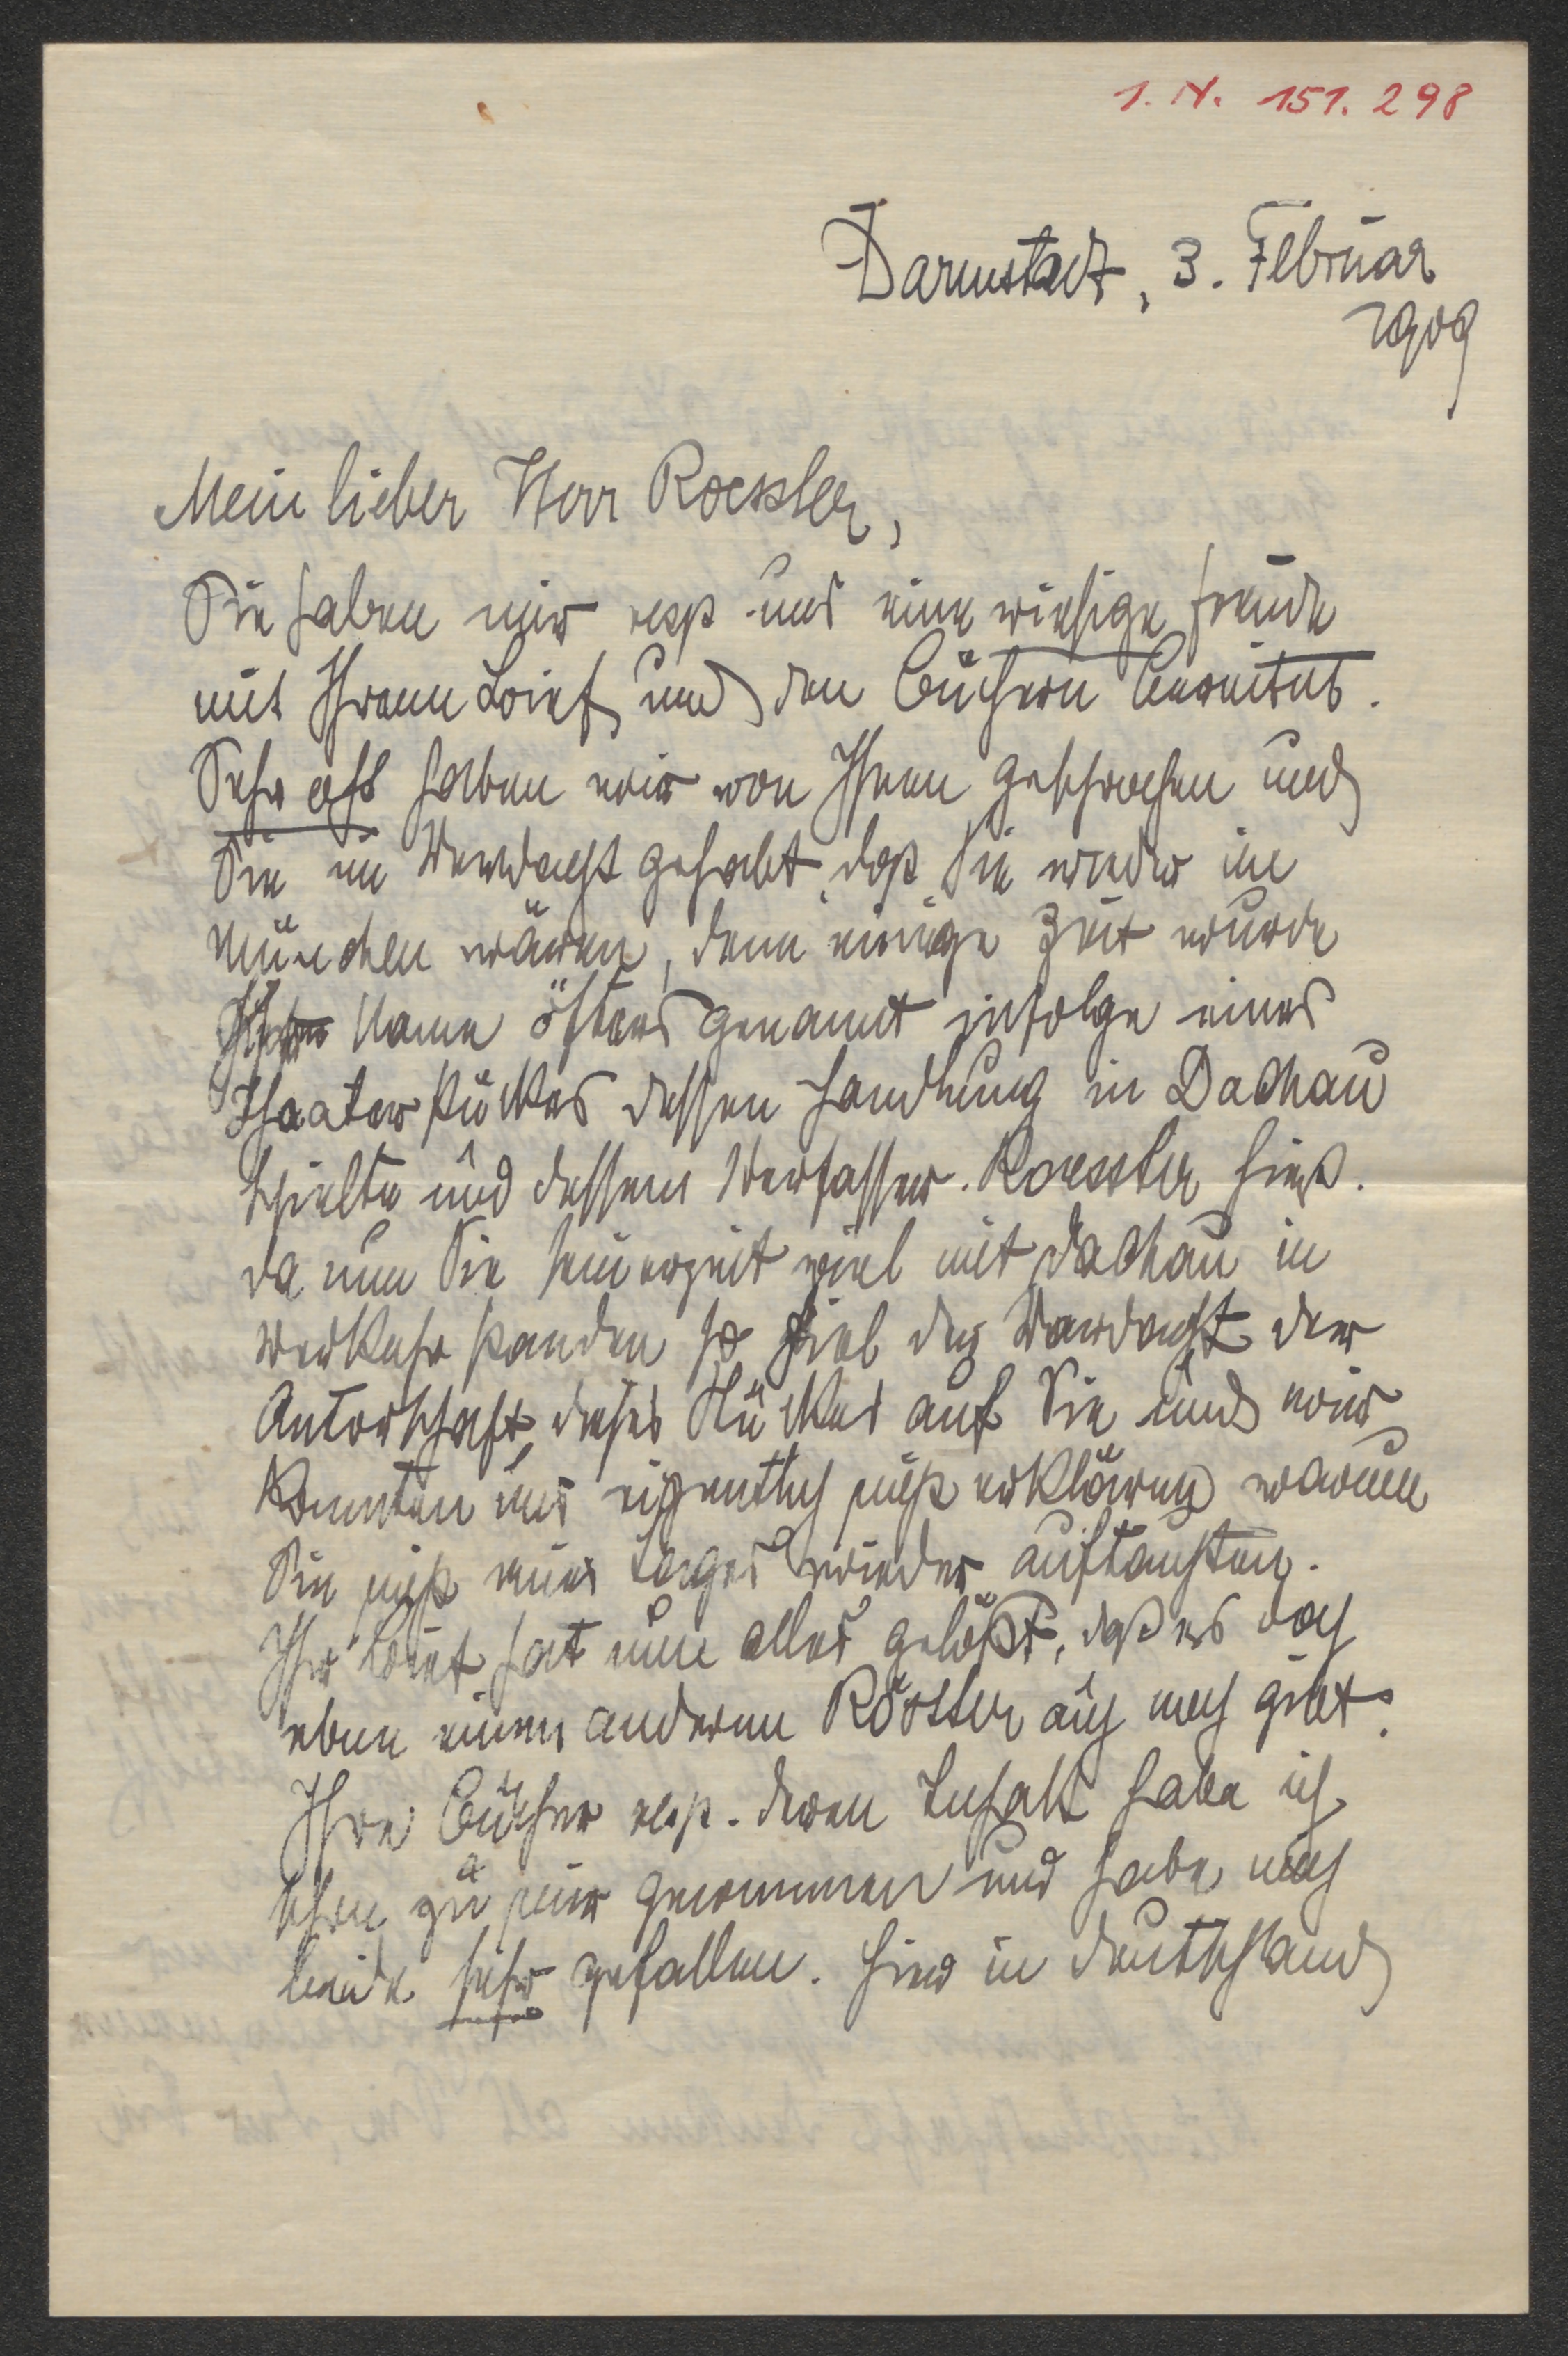 I. N. 151.298
Darmstadt, 3. Februar
1909
Mein lieber Herr Roessler,
Sie haben mir resp. uns eine riesige Freude
mit Ihrem Brief und den Büchern bereitet.
Sehr oft haben wir von Ihnen gesprochen und
Sie im Verdacht gehabt, daß Sie wieder in
München wären, denn einige Zeit wurde
Ihr Name öfters genannt infolge eines
Theaterstückes dessen Handlung in Dachau
spielte und dessen Verfasser Roessler hieß.
Da nun Sie seinerzeit viel mit Dachau in
Verkehr standen so fiel der Verdacht der
Autorschaft dieses Stückes auf Sie und wir
konnten uns eigentlich nicht erklären warum
Sie nicht eines Tages wieder auftauchten.
Ihr Brief hat nun alles gelößt, daß es doch
eben einen anderen Rössler auch noch gibt.
Ihre Bücher resp. deren Inhalt habe ich
schon zu mir genommen und habe mich
beide sehr gefallen. Hier in Deutschland